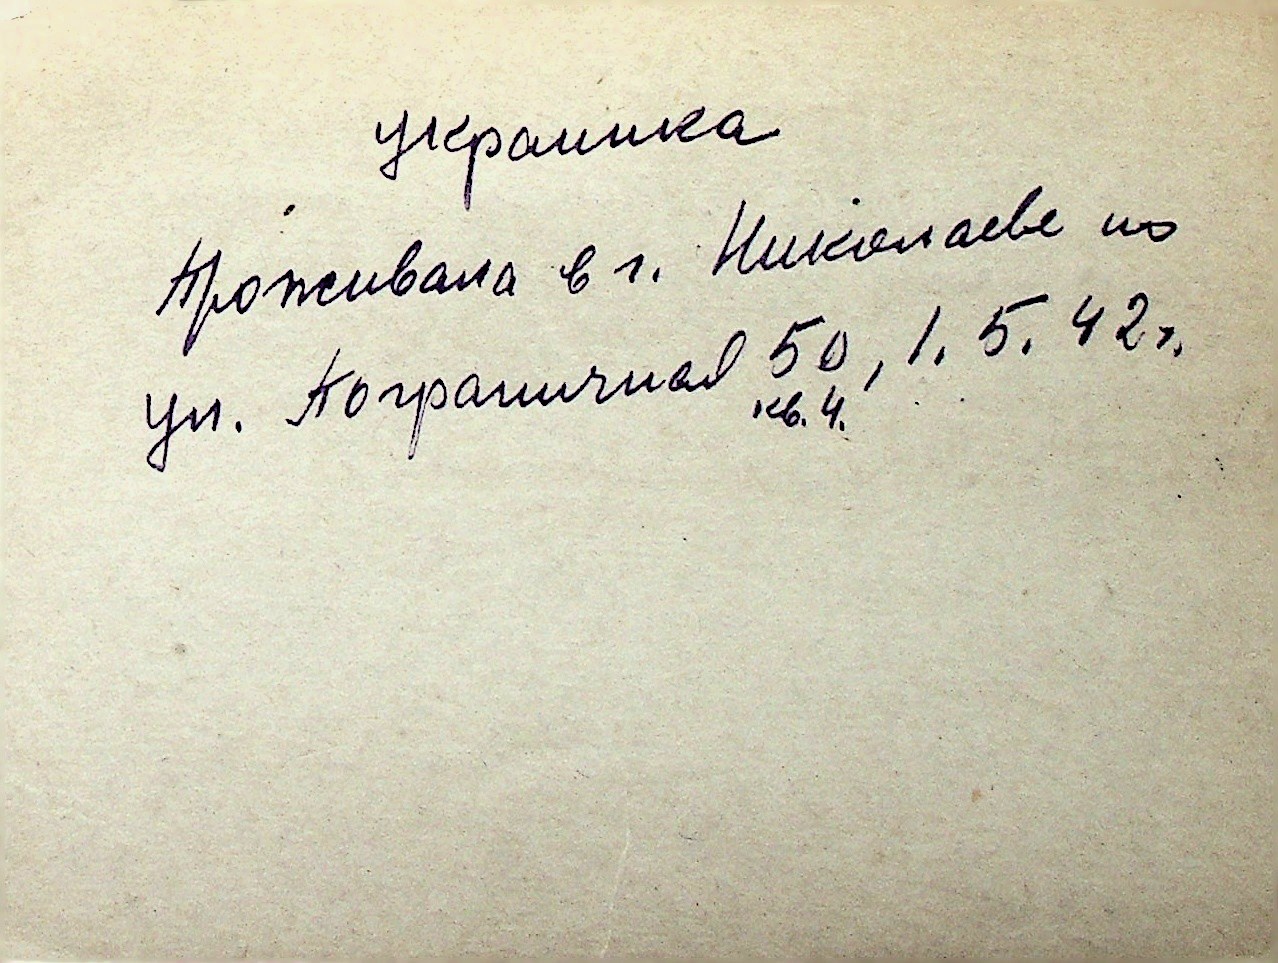 украинка
Проживала в г. Николаеве по
ул. Пограничная 50, 1.5.42г.
кв. 4.